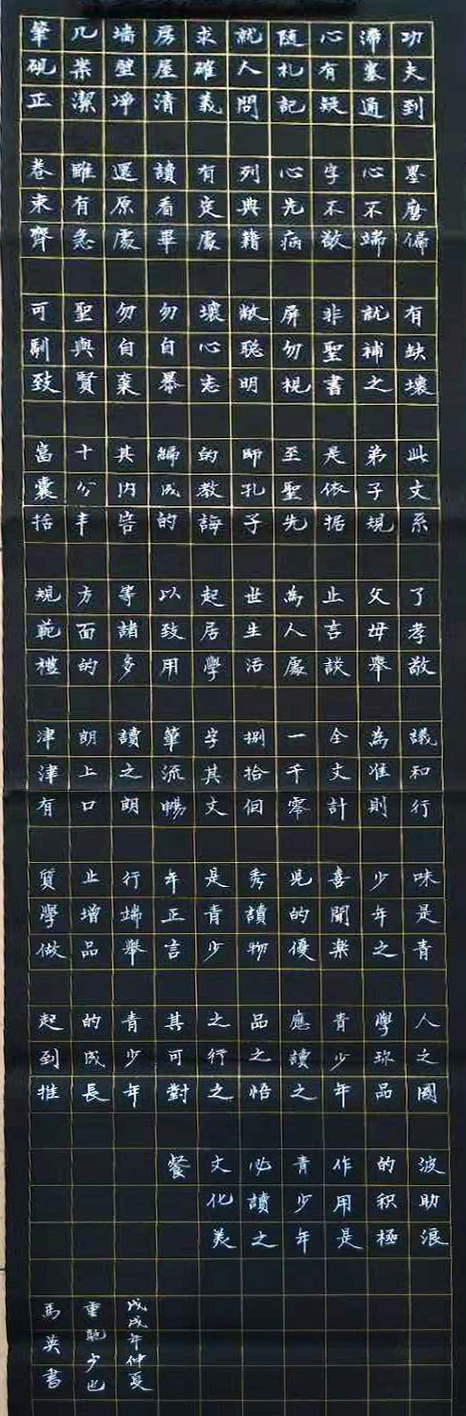 功夫到
滯塞通
心有疑
隨札記
就人問
求確義
房屋清
墙壁凈
几案潔
筆硯正
墨磨偏
心不端
字不敬
心先病
列典籍
有定處
讀看畢
還原處
雖有急
卷束齊
有缺壞
就補之
非聖書
屏勿視
敝聪明
壞心志
勿自暴
勿自棄
聖與賢
可馴致
此文系
弟子規
是依据
至聖先
師孔子
的教誨
編成的
其内容
十分丰
富囊括
了孝敬
父母舉
止言談
為人處
世生活
起居學
以致用
等諸多
方面的
規範禮
議和行
為准則
全文計
一千零
捌拾個
字其文
筆流暢
讀之朗
朗上口
津津有
味是青
少年之
喜聞樂
見的優
秀讀物
是青少
年正言
行端舉
止增品
質學做
人之國
學珎品
青少年
應讀之
品之怡
之行之
其可對
青少年
的成長
起到推
波助浪
的积極
作用是
青少年
必讀之
文化美
餐
戊戌年仲夏
馬英書